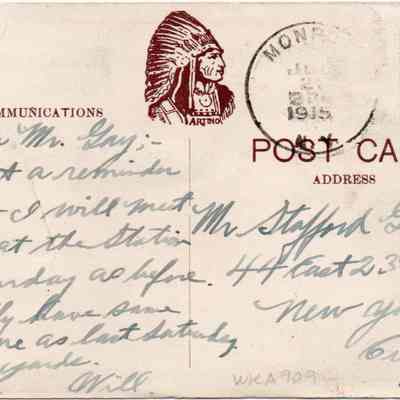 MMUNICATIONS
ARTINO
MONR
JU
2
1915
N.Y.
POST CA
ADDRESS
Mr. Gay;-
a reminder
I will meet
at the Station
urday as before.
have same
as last Saturday
Will.
Mr Stafford G
44 East 23
New Yo
Ci
WKA909